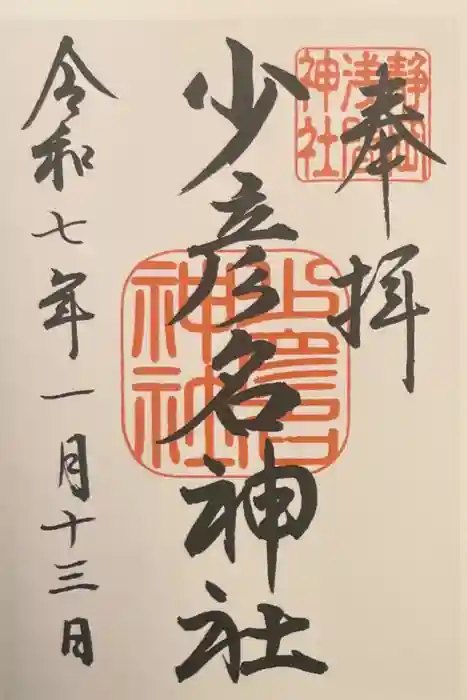 奉拝
静岡
浅間
神社
少彦名神社
少彦名
神社
令和七年一月十三日